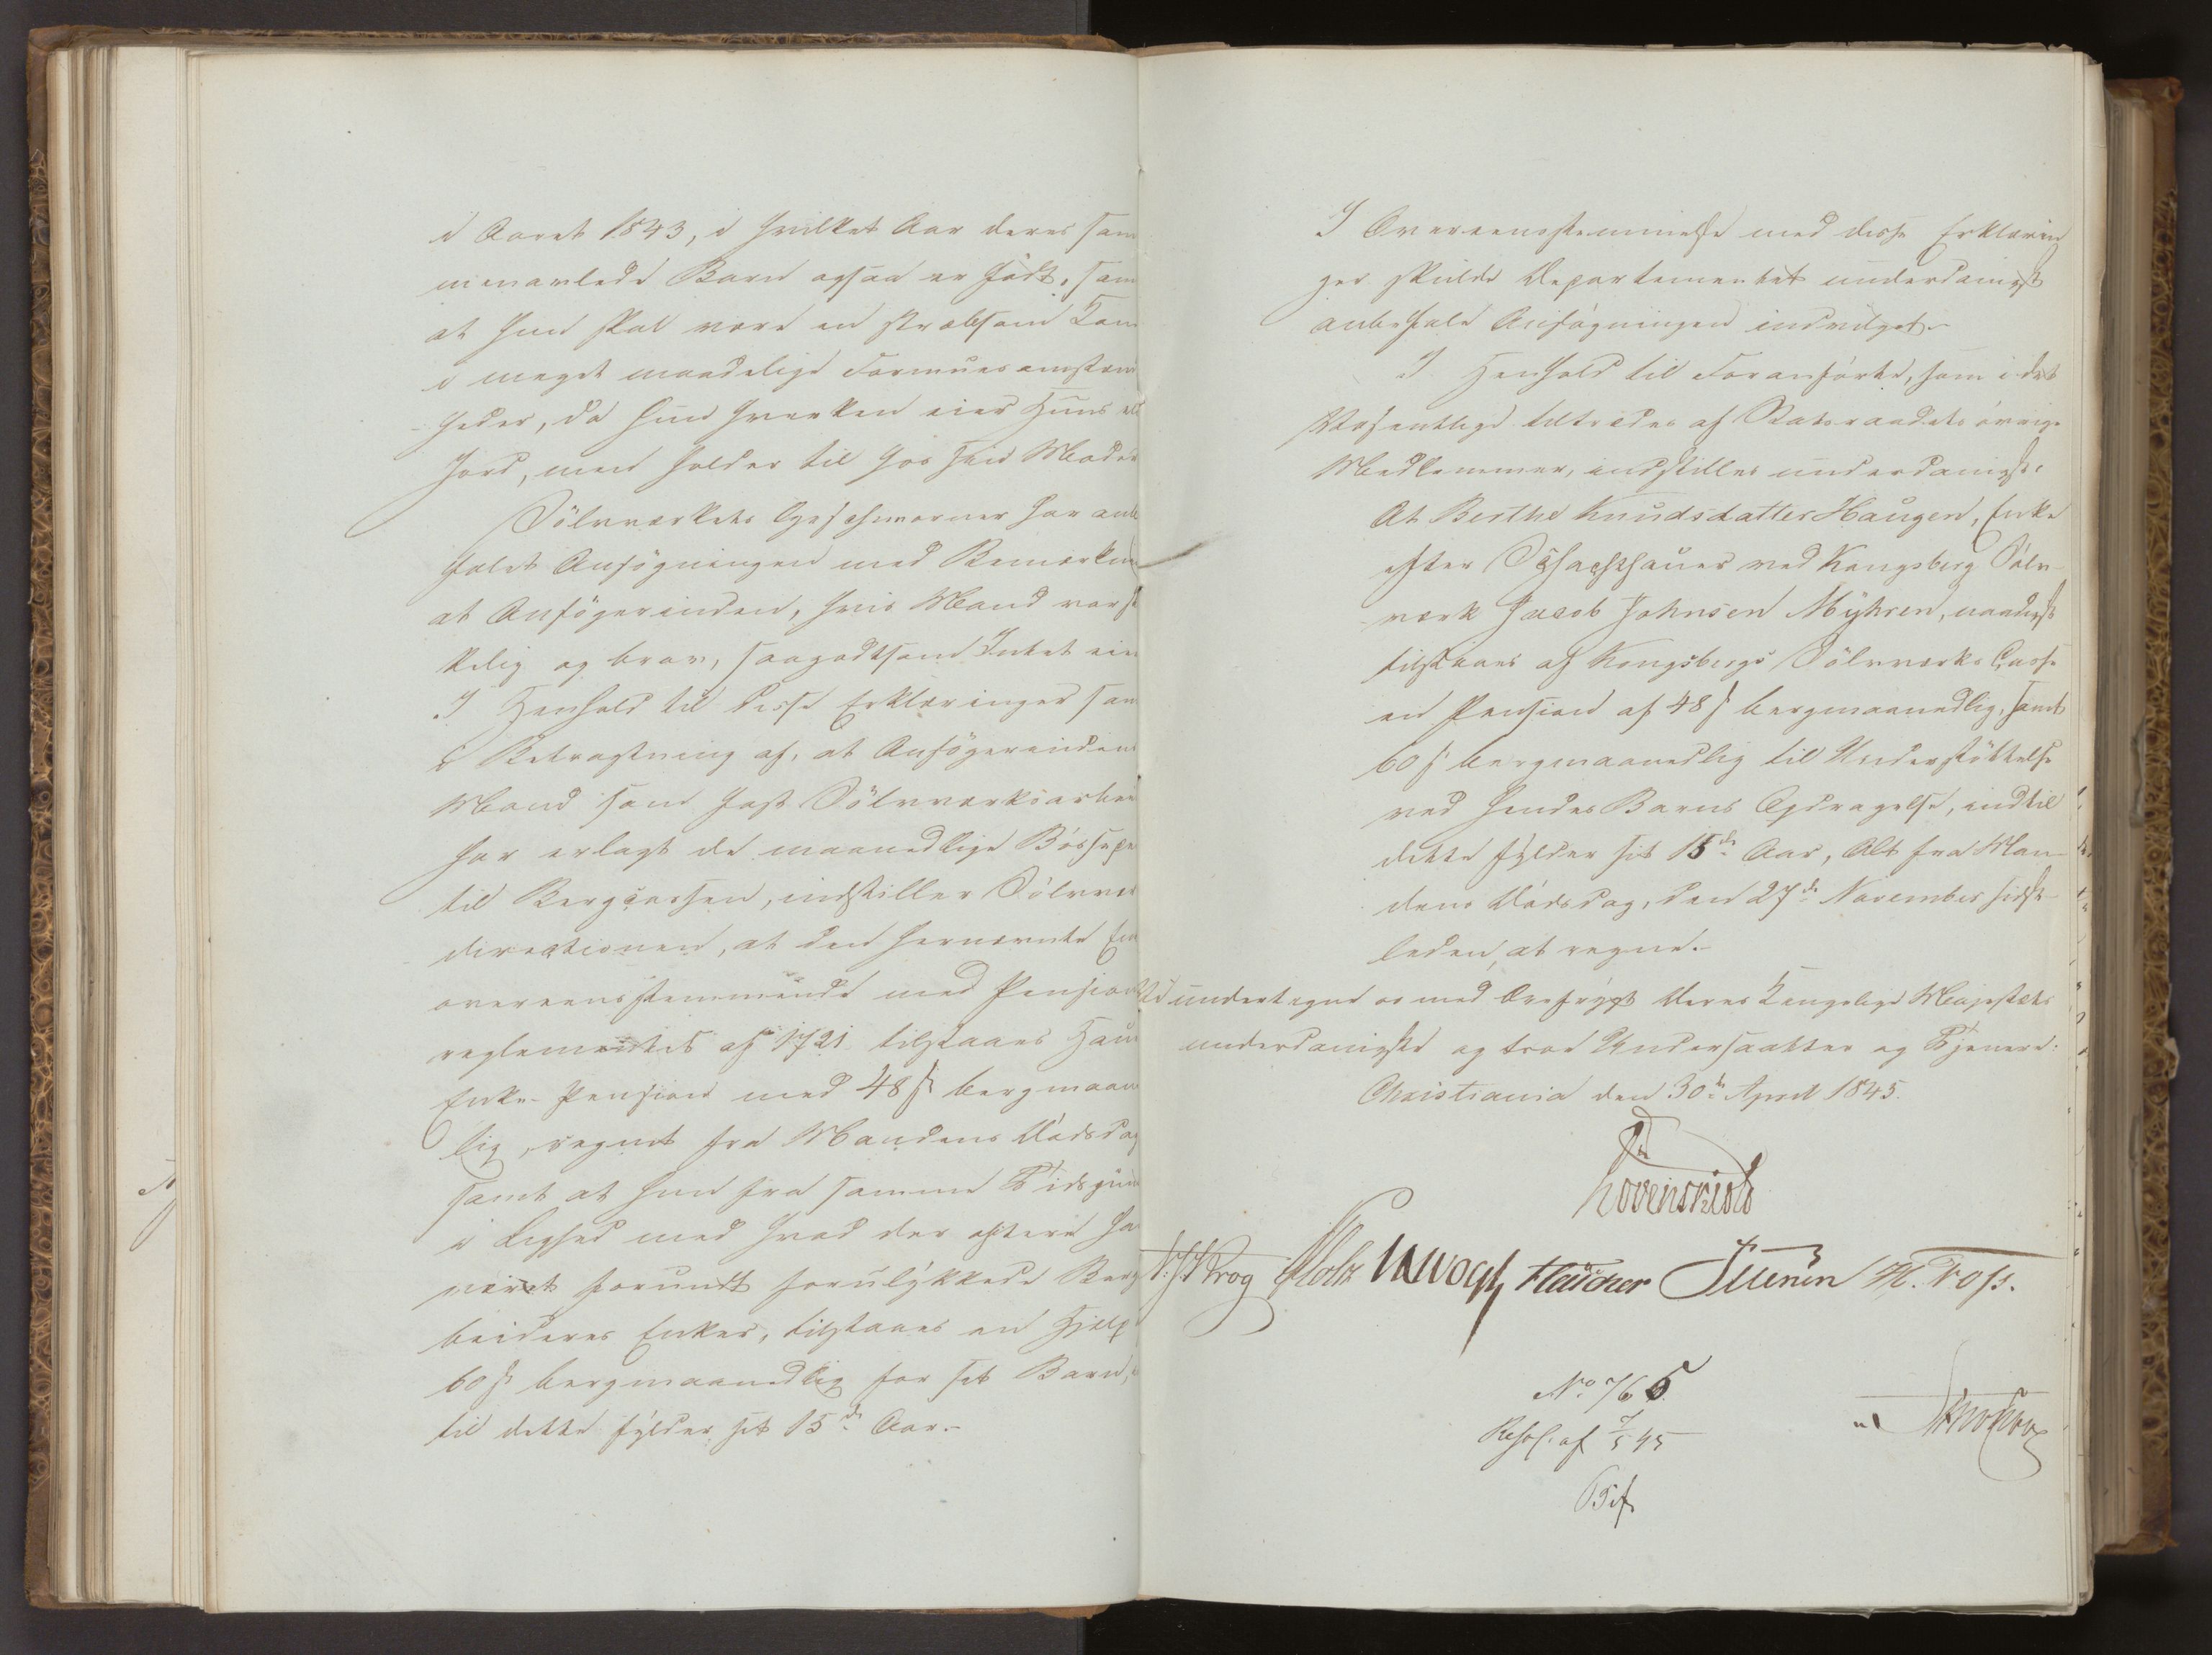 i Aaret 1843, i hvilket Aar deres sam
menavlede Barn ogsaa er født, sam
at hun skal være en stræbsom Kon
i meget maadelige Formuesomstæn
heder, da hun hverken eier Huus ell
Jord, men holder til hos sin Moder
Sölvværkets Geschworner har anbe
falet Ansögningen med Bemærkni
at Ansögerinden, hvis Mand var
kelig og brav, saagodtsom Intet eie
I Henhold til disse Erklæringer sam
i Betragtning af, at Ansögerindens
Mand som fast Sölvværksarbei
har erlagt de maanedlige Bössepe
til Bergcassen, indstiller Sölvvær
directionen, at den hernævnte En
overeensstemmende med Pension
reglementet af 1721 tilstaaes Hau
Enke-Pension med 48 s bergmaan
lig, regnet fra Mandens Dödsdag
samt at hun fra samme Tidspun
i Lighed med hvad der oftere ha
været forundt forulykkede Berg
beideres Enker, tilstaaes en Hjelp
60 s bergmaanedlig for sit Barn,
til dette fylder sit 15de Aar.-
I Overeensstemmelse med disse Erklærin
ger skulde Departementet underdanigst
anbefale Ansögningen indvilget.-
I Henhold til Foranförte, som i det
Væsentlige tiltrædes af Statsraadets övrige
Medlemmer, indstilles underdanigst:
At Berthe Knudsdatter Haugen, Enke
efter Schachthauer ved Kongsberg Sölv-
værk Jacob Johnsen Myhren, naadigst
tilstaaes af Kongsbergs Sölvværks Casse
en Pension af 48 s bergmaanedlig, samt
60 s bergmaanedlig til Understöttelse
ved hendes Barns Opdragelse, indtil
dette fylder sit 15de Aar, Alt fra Man-
dens Dödsdag, den 27de November sidst-
leden, at regne.-
undertegne os med Ærefrygt Deres Kongelige Majestæts
underdanigste og troe Undersaatter og Tjenere.
Christiania den 30te April 1845.
Lövenskiold
Krog Holst Vogt Fleischer Petersen H. Foss.
No 765
Resol. af 7/5 45